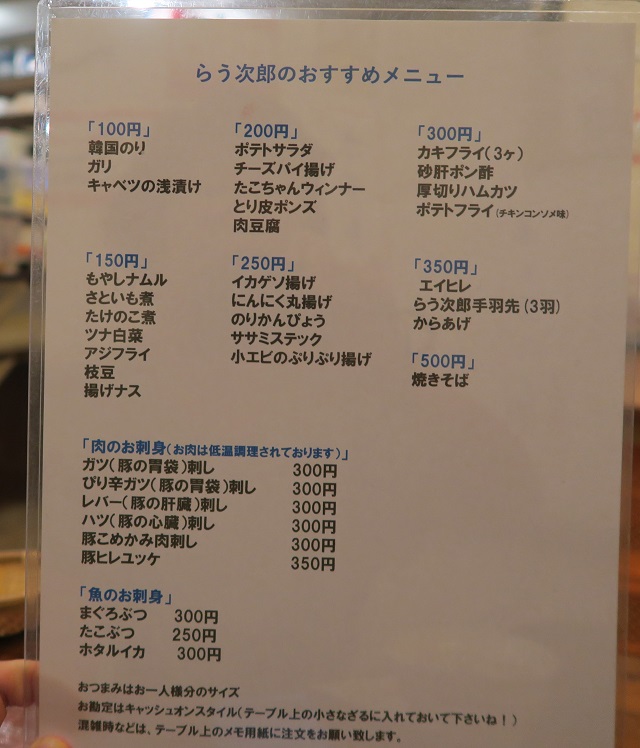 らう次郎のおすすめメニュー
「100円」
韓国のり
ガリ
キャベツの浅漬け
「200円」
ポテトサラダ
チーズパイ揚げ
たこちゃんウィンナー
とり皮ポンズ
肉豆腐
「300円」
カキフライ(3ヶ)
砂肝ポン酢
厚切りハムカツ
ポテトフライ(チキンコンソメ味)
「150円」
もやしナムル
さといも煮
たけのこ煮
ツナ白菜
アジフライ
枝豆
揚げナス
「250円」
イカゲソ揚げ
にんにく丸揚げ
のりかんぴょう
ササミステック
小エビのぷりぷり揚げ
「350円」
エイヒレ
らう次郎手羽先(3羽)
からあげ
「500円」
焼きそば
「肉のお刺身(お肉は低温調理されております)」
ガツ(豚の胃袋)刺し 300円
ぴり辛ガツ(豚の胃袋)刺し 300円
レバー(豚の肝臓)刺し 300円
ハツ(豚の心臓)刺し 300円
豚こめかみ肉刺し 300円
豚ヒレユッケ 350円
「魚のお刺身」
まぐろぶつ 300円
たこぶつ 250円
ホタルイカ 300円
おつまみはお一人様分のサイズ
お勘定はキャッシュオンスタイル(テーブル上の小さなざるに入れておいて下さいね!)
混雑時などは、テーブル上のメモ用紙に注文をお願い致します。